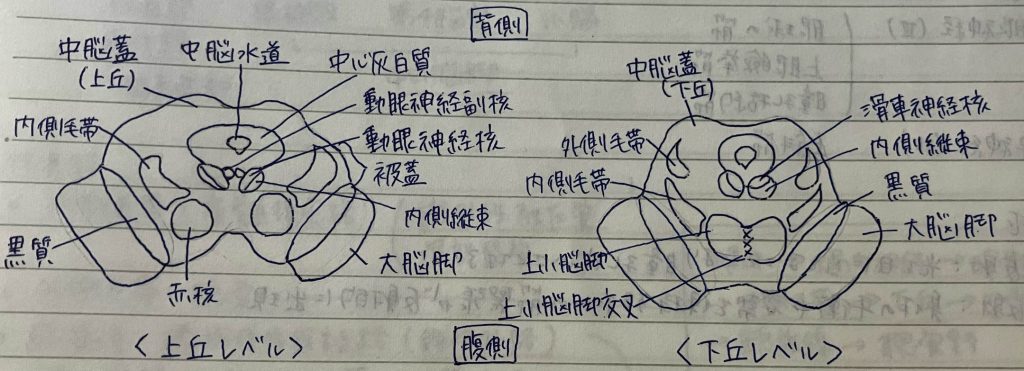 背側
中脳蓋
(上丘)
中脳水道
中心灰白質
動眼神経副核
動眼神経核
被蓋
内側毛帯
内側縦束
黒質
赤核
大脳脚
<上丘レベル>
中脳蓋
(下丘)
滑車神経核
外側毛帯
内側縦束
内側毛帯
黒質
大脳脚
上小脳脚
上小脳脚交叉
腹側
<下丘レベル>